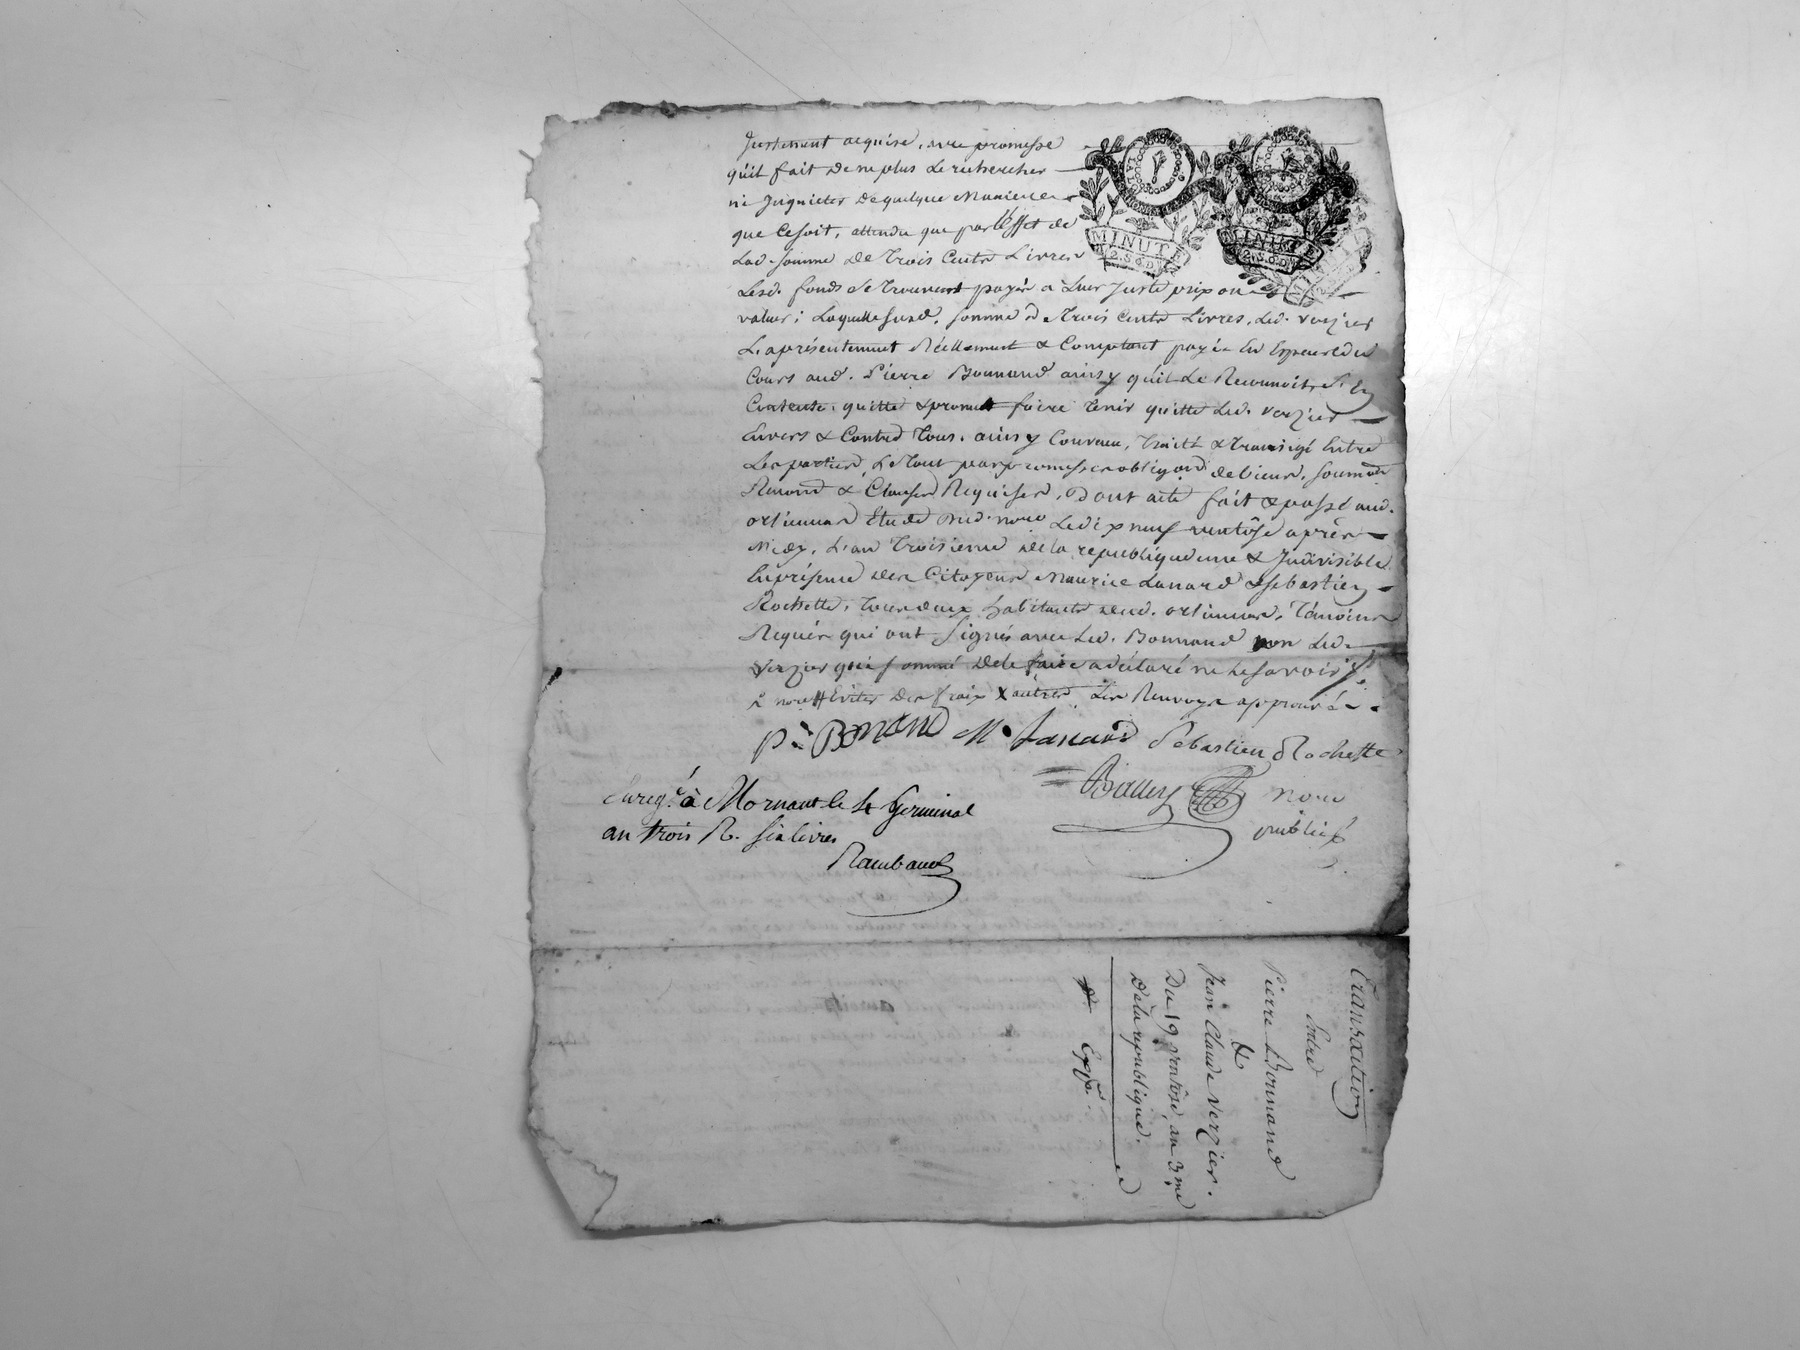 justement acquise, avec promesse
qu'il fait de ne plus le rechercher
ni jnquieter de quelque Maniere
que ce soit, attendu que par l'effet de
lad. somme de trois Cents Livres
lesd. fonds se trouvent payés a leur juste prix ou
valeur; laquelle susd. somme de trois Cents Livres, led. verzier
l'a présentement Réellement & Comptant payée En Especes du
Cours aud. Pierre Bonnand ainsy qu'il Le Reconnoit, s'En
Contente, quitte & promet faire tenir quitte led. verzier
Envers & Contre tous. ainsy Convenu, traité & transigé Entre
Les parties, Le tout par promesses obligaõn de biens, soumõn
Renonõn & Clauses Requises, Dont acte fait & passé aud.
orlienas Etude dud. nore Le dix neuf ventôse après
Midy, L'an troisieme de la republique une & Jndivisible
En présence des Citoyens Maurice Lanard & sebastien
Rochette, tous deux habitants dud. orlienas, témoins
Requis qui ont signés avec led. Bonnand non led.
verzier qui sommé de le faire a déclaré ne le savoir
& autres Les Renvoys approuvés
pr BONAND Mce Lanard Sebastien Rochette
nore
public
Enregé à Mornant le 4 Germinal
an trois R. six livres
Rambaud
MINUTE
2.S.6.D
MINUTE
2.S.6.D
Transaction
Entre
Pierre Bonnand
&
Jean Claude verzier.
Du 19 ventôse, an 3me
de la république.
Expé.